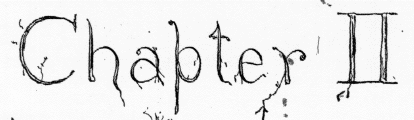 Chapter II